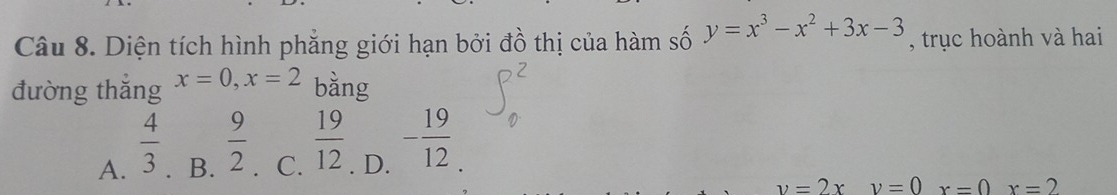 Câu 8. Diện tích hình phẳng giới hạn bởi đồ thị của hàm số y = x³ − x² + 3x − 3, trục hoành và hai
đường thẳng x = 0, x = 2 bằng ∫₀²
A. 4/3. B. 9/2. C. 19/12. D. −19/12.
y = 2x y = 0 x = 0 x = 2